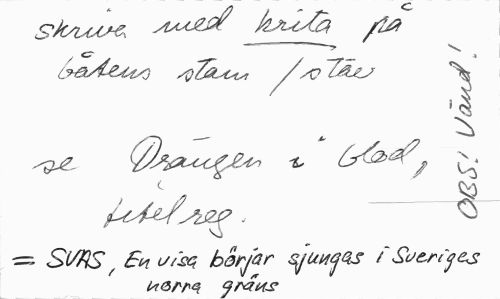 skriva med krita på
båtens stam / stäv
se Drängen i blod,
titelreg.
OBS! Vänd!
= SVAS, En visa börjar sjungas i Sveriges
norra gräns